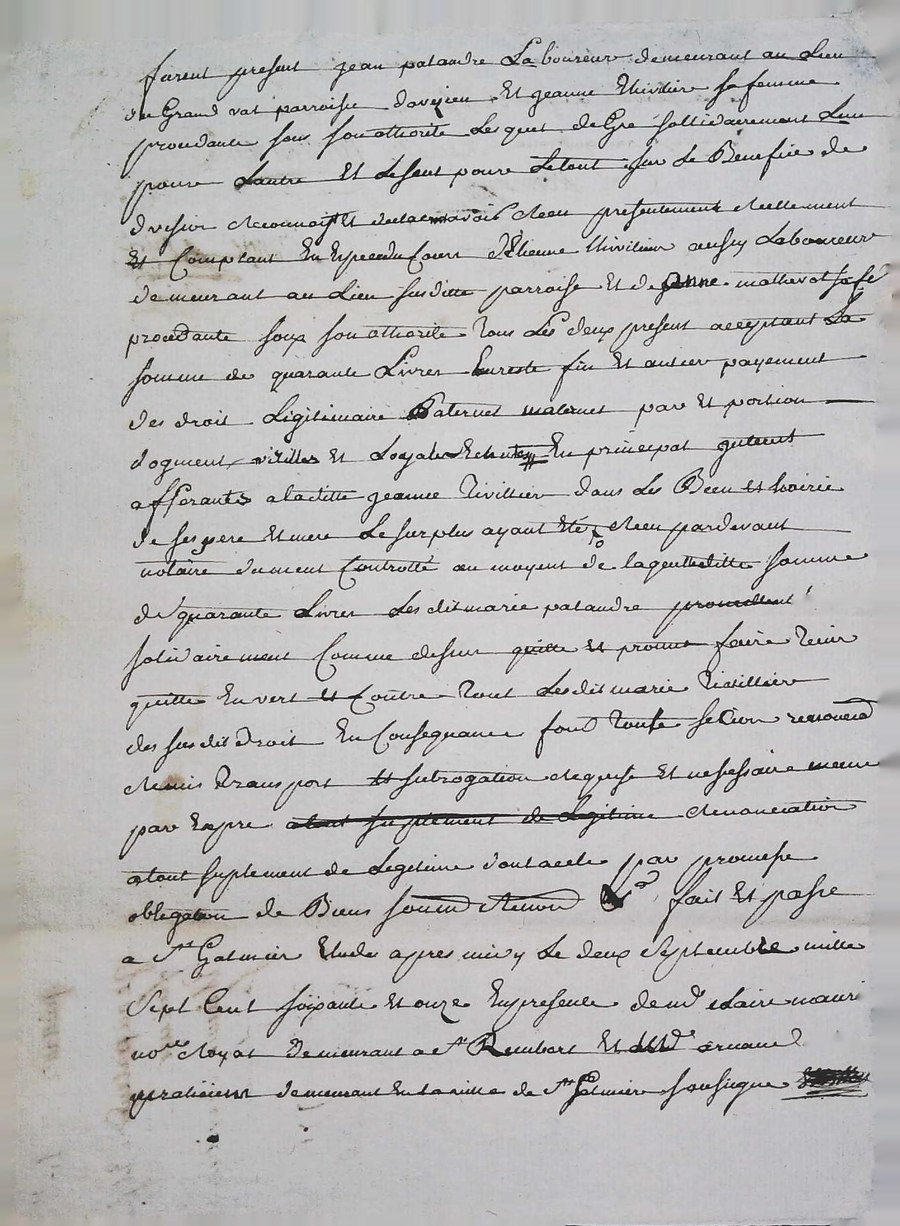 furent present jean patandre Laboureur demeurant au Lieu
du Grand vat parroisse daveizieu Et jeanne thivilier sa femme
procedante sous son othorité Lesquel de Gré sollidairement Lun
pour Lautre Et Leseul pour Letout sur Le Benefice de
division Reconnoist Et declare avoir Receu presentement Reellement
Et Comptant En Espece du Cour dEtienne thivilier aussy Laboureur
demeurant au Lieu susditte parroisse Et de jeanne mathevot sa fe
procedante soux son othorité tous Les deux present acceptant La
somme de quarante Livres En reste fin Et antier payement
des droit Legitimaire Paternel maternel part Et portion
dogment, virilles Et Loyales Echutes En principal
afferantes a laditte jeanne tivillier dans Les Bien Et hoirie
de ses pere Et mere Le surplus ayant Eté Receu pardevant
notaire dument Controllé au moyent de laquelleditte somme
de quarante Livres Les dit marié patandre promettent
solidairement Comme dessus quitte Et promet faire tenir
quitte Envert Et Contre tout Lesdit marié tivillier
des susdit droit En Consequance font toute
demis transport Et subrogation Requise Et nessessaire meme
par Expre atout suplement de Legitime Renonciation
atout suplement de Legitime dont acte par promesse
obligation de Biens soumd Renond fait Et passé
a St Galmier Etude apres midy Le deux Septembre mille
Sept Cent soixante Et onze En presente de md claire mauri
nore Royal demeurant a St Rembert Et arnaud
praticien demeurant En la ville de St Galmier soussigne